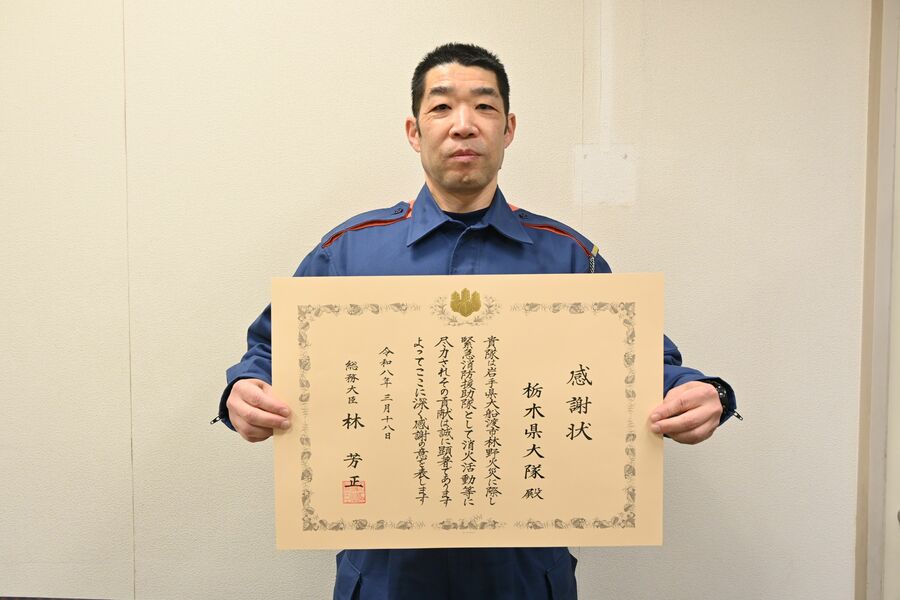 感謝状
栃木県大隊 殿
貴隊は岩手県大船渡市林野火災に際し
緊急消防援助隊として消火活動等に
尽力されその貢献は誠に顕著であります
よってここに深く感謝の意を表します
令和八年 三月十八日
総務大臣 林 芳正